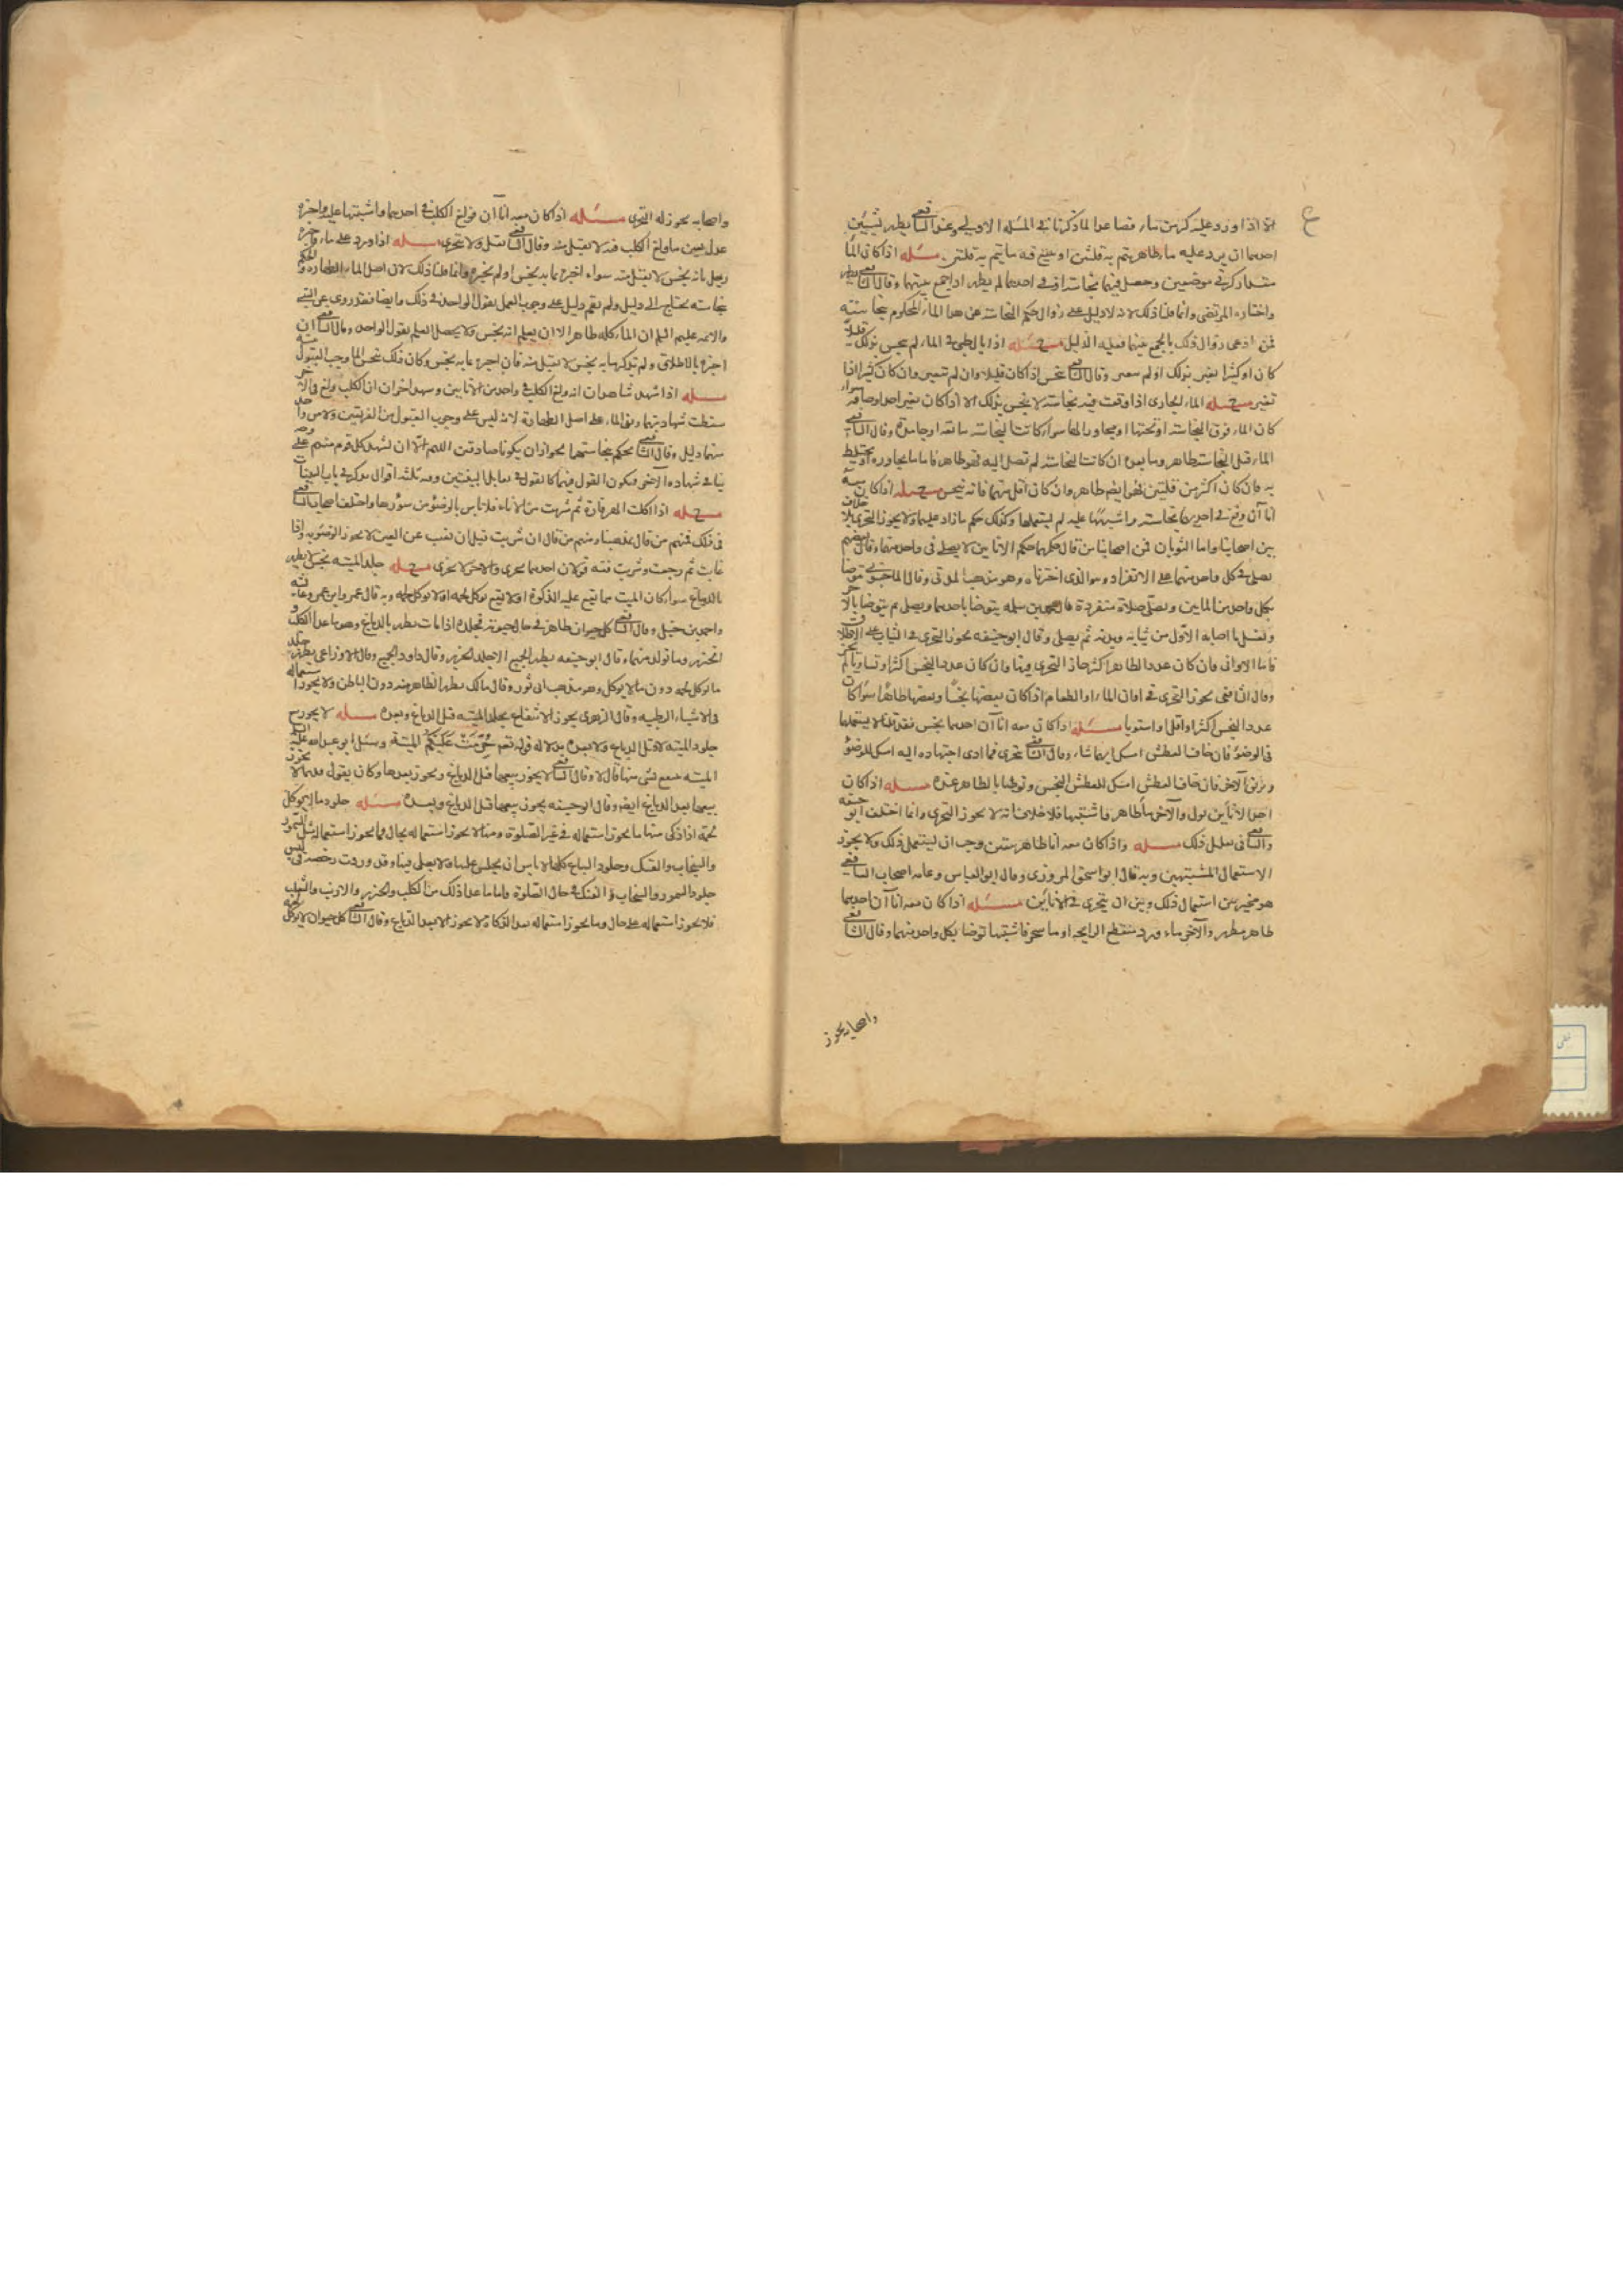 الا اذا ورد عليه كر من ماء فصاعدا لما ذكرناه في المسئله الاولي وعند الشافعي يطهر بشيئين
احدهما ان يرد عليه ماء طاهر يتم به قلتين او ينبع فيه ما يتم به قلتين مسئله اذا كان الما
مقدار كر في موضعين وحصل فيهما نجاسة او في احدهما لم يطهر اذا جمع بينهما وقال الشافعي يطهر
واختاره المرتضى وانما قلنا ذلك لانه لا دليل على زوال حكم النجاسة عن هذا الماء المحكوم بنجاسته
فمن ادعى زوال ذلك بالجمع بينهما فعليه الدليل مسئله اذا بال ظبي في الماء لم ينجس بذلك قليلا
كان او كثيرا تغير بذلك او لم يتغير وقال الشافعي ينجس اذا كان قليلا وان لم يتغير وان كان كثيرا اذا
تغير مسئله الماء الجاري اذا وقعت فيه نجاسة لا ينجس بذلك الا اذا كان تغير احد اوصافه سواء
كان الماء فوق النجاسة او تحتها او مجاورا لها سواء كانت النجاسة مايعة او جامدة وقال الشافعي
الماء قبل النجاسة طاهر وما بعده ان كانت النجاسة لم تصل اليه فهو طاهر فاما ما يجاوره ويختلط
به فان كان اكثر من قلتين فهو ايضا طاهر وان كان اقل منهما فانه ينجس مسئله اذا كان معه
انا آن وقع في احديهما نجاسة واشتبها عليه لم يستعملهما وكذلك حكم ما زاد عليهما ولا يجوز التحري بلا خلاف
بين اصحابنا واما الثوبان فمن اصحابنا من قال حكمهما حكم الانائين لا يصلي في واحد منهما وقال بعضهم
يصلي في كل واحد منهما على الانفراد وهو الذي اخترناه وهو مذهب المزني وقال الماجشوني يتوضا
بكل واحد من المائين ويصلي صلاة منفردة قال محمد بن مسلمه يتوضا باحدهما ويصلي ثم يتوضا بالآخر
ويغسل ما اصابه الاول من ثيابه وبدنه ثم يصلي وقال ابو حنيفه يجوز التحري في الثياب على الاطلاق
فاما الاواني فان كان عدد الطاهر اكثر جاز التحري فيها وان كان عدد النجس اكثر او تساويا لم يجز
وقال الشافعي يجوز التحري في اواني الماء او الطعام اذا كان بعضها نجسا وبعضها طاهرا سواء كان
عدد النجس اكثر او اقل او استويا مسئله اذا كان معه انا آن احدهما نجس فقد قلنا لا يستعملهما
في الوضوء فان خاف العطش امسك ايهما شاء وقال الشافعي يتحرى فما ادى اجتهاده اليه امسك للوضوء
ويريق الآخر فان خاف العطش امسك للعطش النجس وتوضا بالطاهر عنده مسئله اذا كان
احد الانائين بول والآخر ماء طاهر فاشتبها فلا خلاف انه لا يجوز التحري وانما اختلف ابو حنيفه
والشافعي في تعليل ذلك مسئله واذا كان معه انا طاهر متيقن وجب ان يستعمل ذلك ولا يجوز
الاستعمال المشتبهين وبه قال ابو اسحق المروزي وقال ابو العباس وعامه اصحاب الشافعي
هو مخير بين استعمال ذلك وبين ان يتحرى في الانائين مسئله اذا كان معه انا آن احدهما
طاهر مطهر والآخر ماء ورد منقطع الرايحه او ماء شجر فاشتبها توضا بكل واحد منهما وقال الشافعي
واصحابه يجوز
واصحابه يجوز له التحري مسئله اذا كان معه انا آن فولغ الكلب في احدهما واشتبها عليه واخبره
عدل بعين ما ولغ الكلب فيه لا يقبل منه وقال الشافعي يقبل ولا يتحرى مسئله اذا ورد على ماء فاخبره
رجل بانه نجس لا يقبل منه سواء اخبره بما به نجس او لم يخبره وانما قلنا ذلك لان اصل الماء الطهارة والحكم
بنجاسته يحتاج الى دليل ولم يقم دليل على وجوب العمل بقول الواحد في ذلك وايضا فقد روى عن النبي
والائمه عليهم السلم ان الماء كله طاهر الا ان يعلم انه نجس ولا يحصل العلم بقول الواحد وقال الشافعي ان
اخبره بالاطلاق ولم يذكر ما به نجس لا يقبل منه فان اخبره بما به نجس وكان ذلك ينجس الما وجب القبول منه
مسئله اذا شهد شاهدان انه ولغ الكلب في واحد من الانائين وشهد اخران ان الكلب ولغ في الآخر
سقطت شهادتهما وبقي الماء على اصل الطهارة لانه ليس على وجوب القبول من الفريقين ولا من واحد
منهما دليل وقال الشافعي يحكم بنجاستهما لجواز ان يكونا صادقين اللهم الا ان يشهد كل قوم منهم على وجه
ينافي شهادة الآخر فيكون القول فيهما كالقول في تقابل البينتين وفيه ثلثه اقوال يذكر في باب البينات
مسئله اذا اكلت الهره فارة ثم شربت من الاناء فلا باس بالوضوء من سؤرها واختلف اصحاب الشافعي
في ذلك فمنهم من قال بمذهبنا ومنهم من قال ان شربت قبل ان تغيب عن العين لا يجوز الوضوء به واذا
غابت ثم رجعت وشربت ففيه قولان احدهما يجزي والآخر لا يجزي مسئله جلد الميته نجس لا يطهر
بالدباغ سواء كان الميت مما يقع عليه الذكوة او لا يقع يوكل لحمه او لا يوكل لحمه وبه قال عمر وابن عمر وعائشه
واحمد بن حنبل وقال الشافعي كل حيوان طاهر في حال حيوته فجلده اذا مات يطهر بالدباغ وهو ما عدا الكلب و
الخنزير وما تولد منهما وقال ابو حنيفه يطهر الجميع الا جلد الخنزير وقال داود الجميع وقال الاوزاعي يطهر جلد
ما يوكل لحمه دون ما لا يوكل وهو مذهب ابي ثور وقال مالك يطهر الظاهر منه دون الباطن ولا يجوز استعماله
في الاشياء الرطبه وقال الزهري يجوز الانتفاع بجلد الميته قبل الدباغ وبعده مسئله لا يجوز بيع
جلود الميته لا قبل الدباغ ولا بعده بدلاله قوله تعم حُرِّمَتْ عَلَيْكُمُ الميتة وسئل ابو عبد الله عليه السلم
الميته يبيع شى منها قال لا وقال الشافعي لا يجوز بيعها قبل الدباغ ويجوز بعدها وكان يقول قديما لا يجوز
بيعها بعد الدباغ ايضا وقال ابو حنيفه يجوز بيعها قبل الدباغ وبعده مسئله جلود ما لا يوكل
لحمه اذا ذكي منها ما يجوز استعماله في غير الصلوة ومنها لا يجوز استعماله بحال فما يجوز استعماله مثل السمور
والسنجاب والفنك وجلود السباع كلها لا باس ان يجلس عليها ولا يصلى فيها وقد وردت رخصه في لبس
جلود السمور والسنجاب والفنك في حال الصلوة واما ما عدا ذلك من الكلب والخنزير والارنب والثعلب
فلا يجوز استعماله على حال وما يجوز استعماله بعد الذكاة لا يجوز الا بعد الدباغ وقال الشافعي كل حيوان لا يوكل لحمه